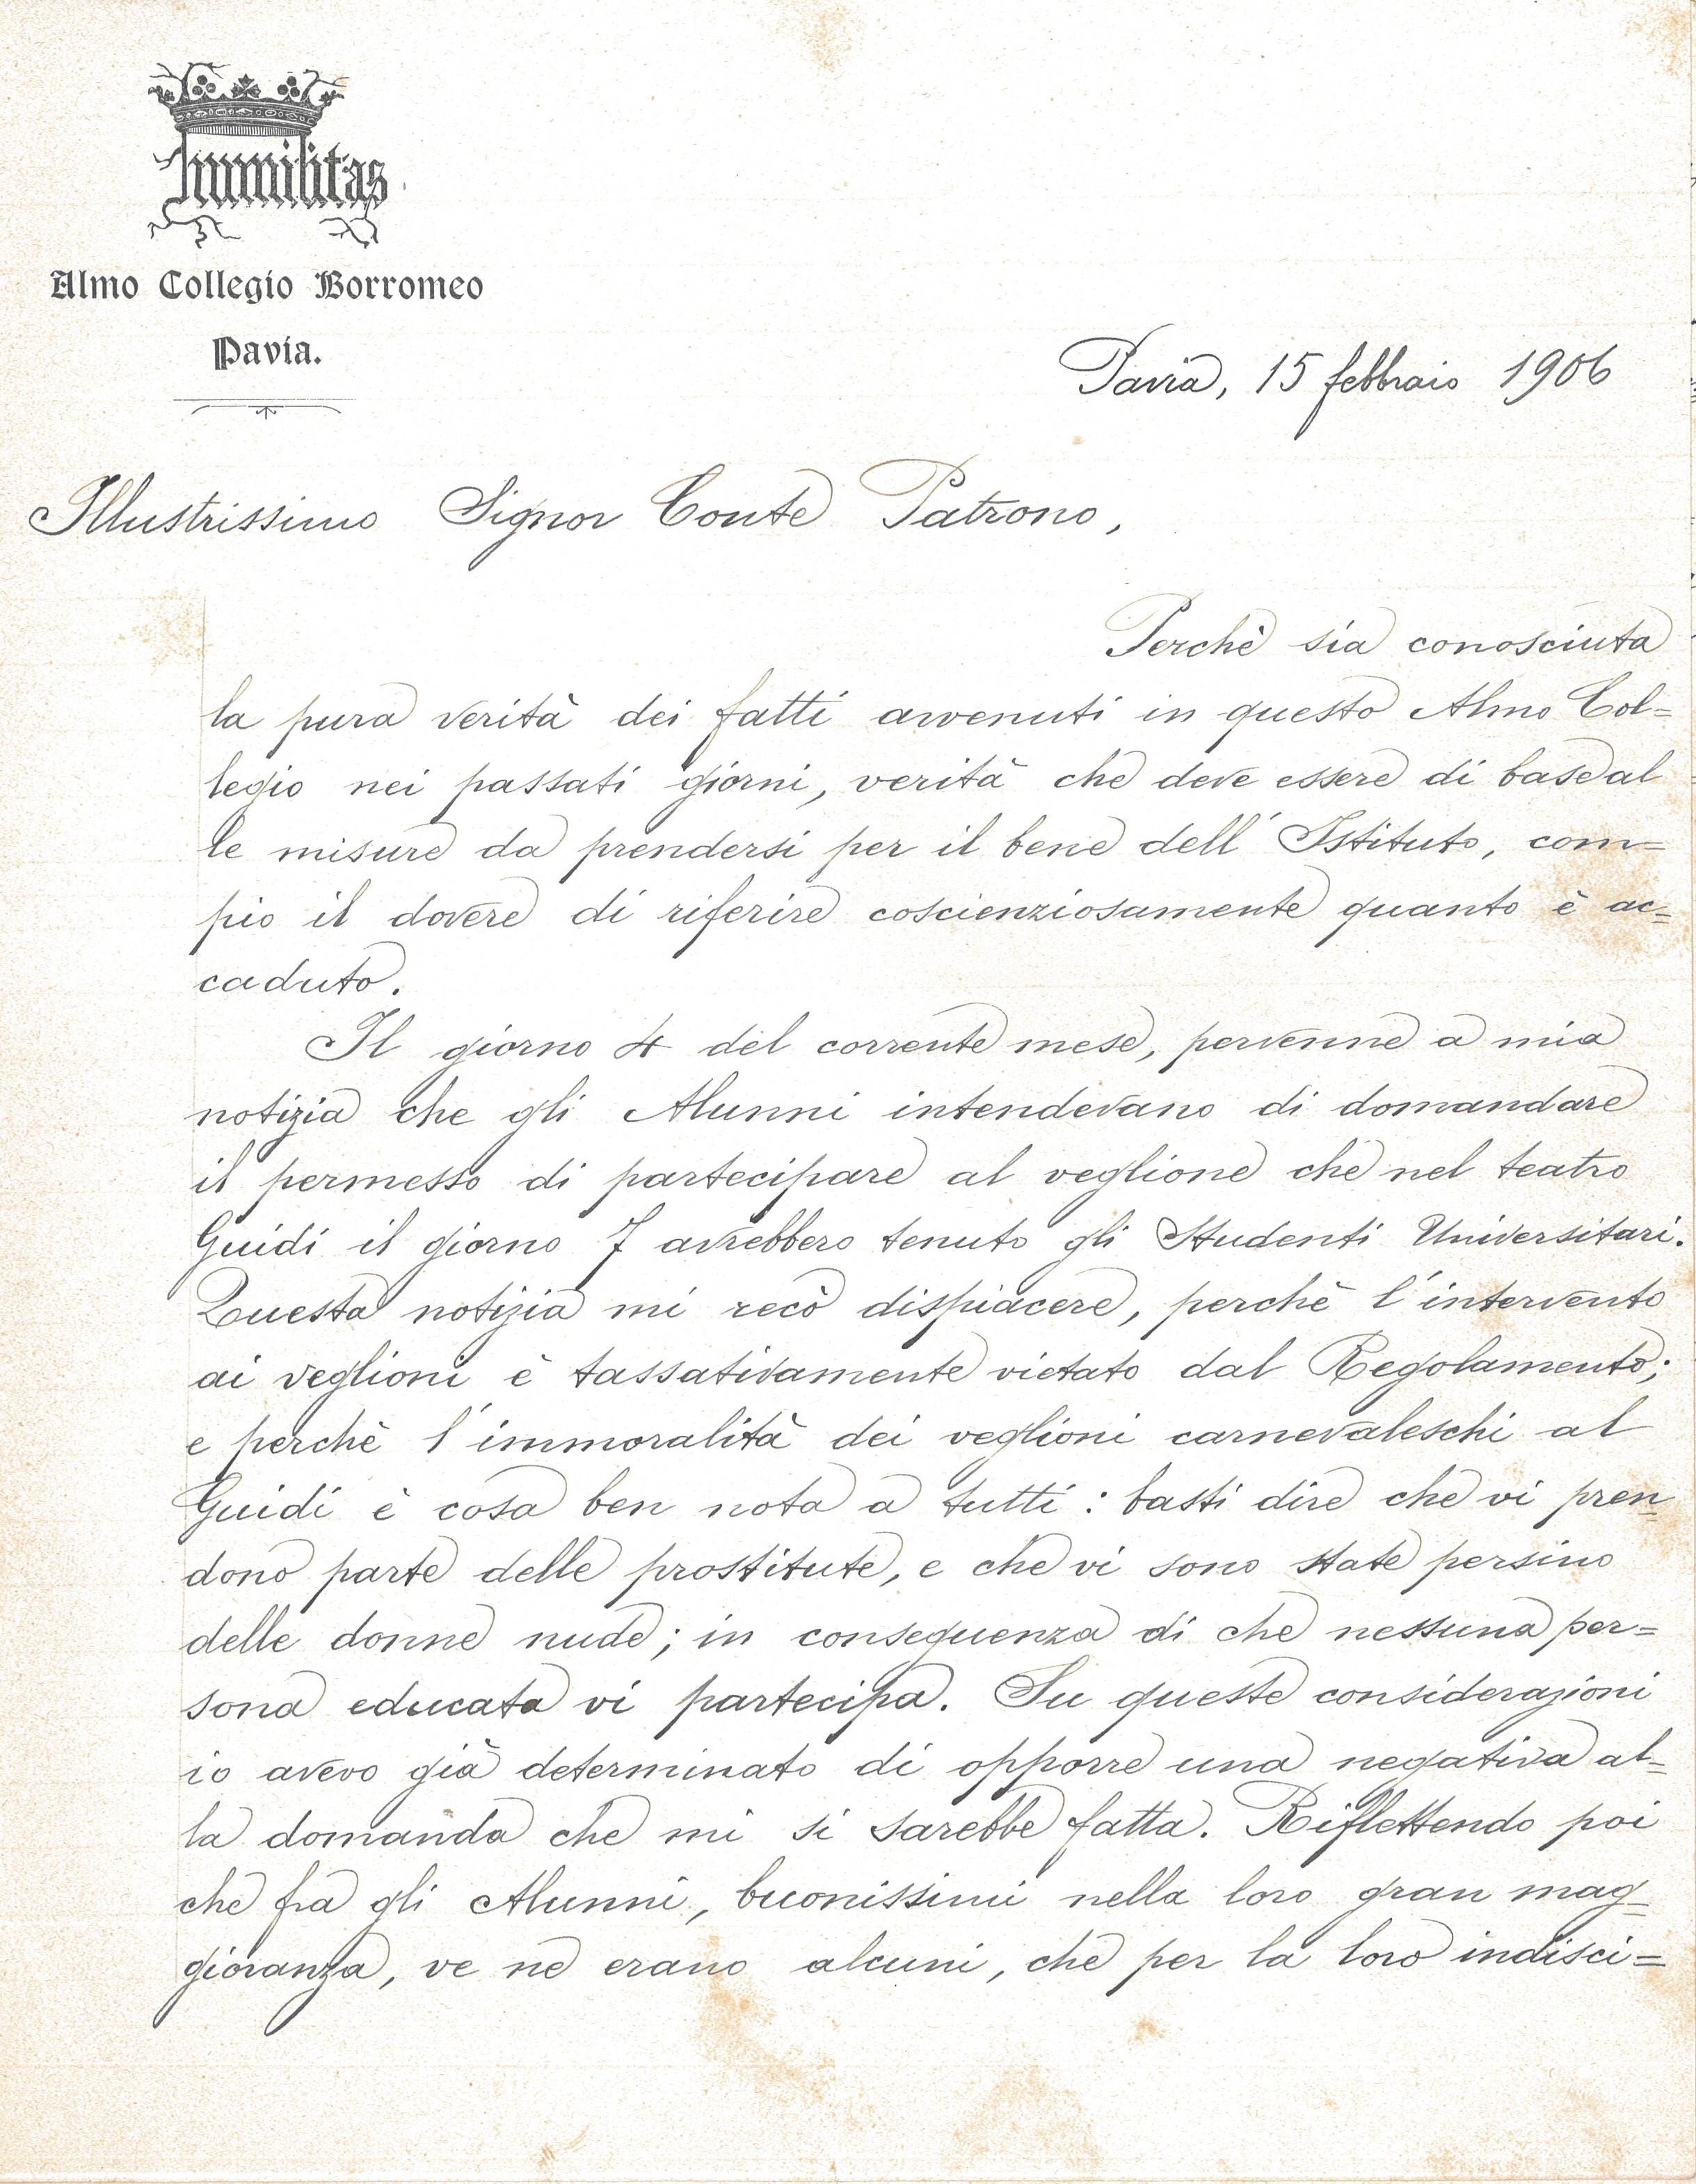 humilitas
Almo Collegio Borromeo
Pavia.
Pavia, 15 febbraio 1906
Illustrissimo Signor Conte Patrono,
Perchè sia conosciuta
la pura verità dei fatti avvenuti in questo Almo Col=
legio nei passati giorni, verità che deve essere di base al
le misure da prendersi per il bene dell'Istituto, com=
pio il dovere di riferire coscienziosamente quanto è ac=
caduto.
Il giorno 4 del corrente mese, pervenne a mia
notizia che gli Alunni intendevano di domandare
il permesso di partecipare al veglione che nel teatro
Guidi il giorno 7 avrebbero tenuto gli Studenti Universitari.
Questa notizia mi recò dispiacere, perchè l'intervento
ai veglioni è tassativamente vietato dal Regolamento;
e perchè l'immoralità dei veglioni carnevaleschi al
Guidi è cosa ben nota a tutti: basti dire che vi pren=
dono parte delle prostitute, e che vi sono state persino
delle donne nude; in conseguenza di che nessuna per=
sona educata vi partecipa. Su queste considerazioni
io avevo già determinato di opporre una negativa al=
la domanda che mi si sarebbe fatta. Riflettendo poi
che fra gli Alunni, buonissimi nella loro gran mag=
gioranza, ve ne erano alcuni, che per la loro indisci=